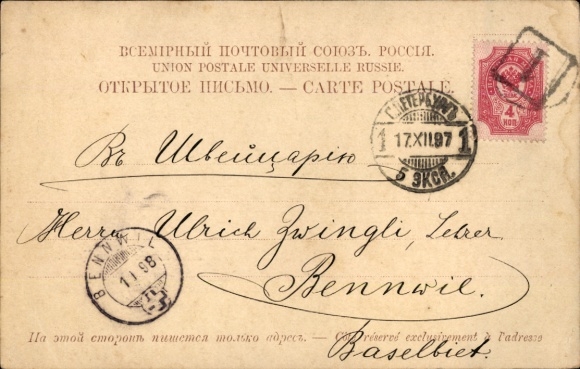 ВСЕМІРНЫЙ ПОЧТОВЫЙ СОЮЗЪ. РОССІЯ.
UNION POSTALE UNIVERSELLE RUSSIE.
ОТКРЫТОЕ ПИСЬМО. — CARTE POSTALE.
4
КОП
Т
С.ПЕТЕРБУРГЪ
1 17.XII.97 1
5 ЭКСП.
Въ Швейцарію
Herrn Ulrich Zwingli, Lehrer
Bennwil.
Baselbiet.
BENNWIL
1 I 98
На этой сторонѣ пишется только адресъ. — Côté réservé exclusivement à l'adresse